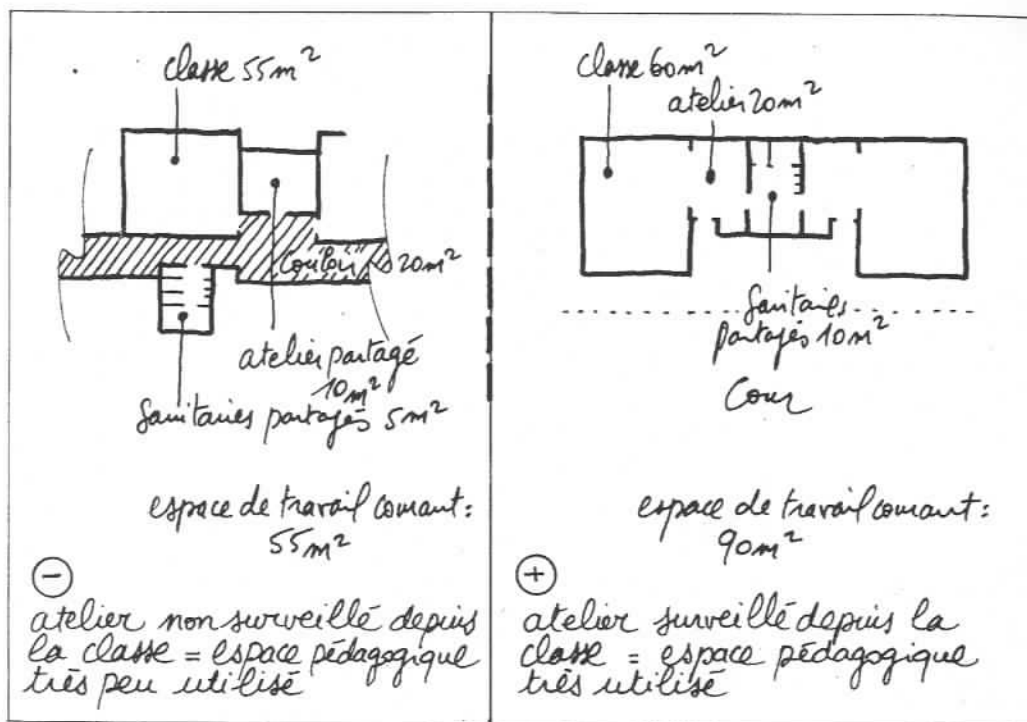 classe 55m²
"Couloir" 20m²
atelier partagé
10m²
Sanitaires partagés 5m²
espace de travail courant:
55m²
−
atelier non surveillé depuis
la classe = espace pédagogique
très peu utilisé
classe 60m²
atelier 20m²
Sanitaires
partagés 10m²
Cour
espace de travail courant:
90m²
+
atelier surveillé depuis la
classe = espace pédagogique
très utilisé